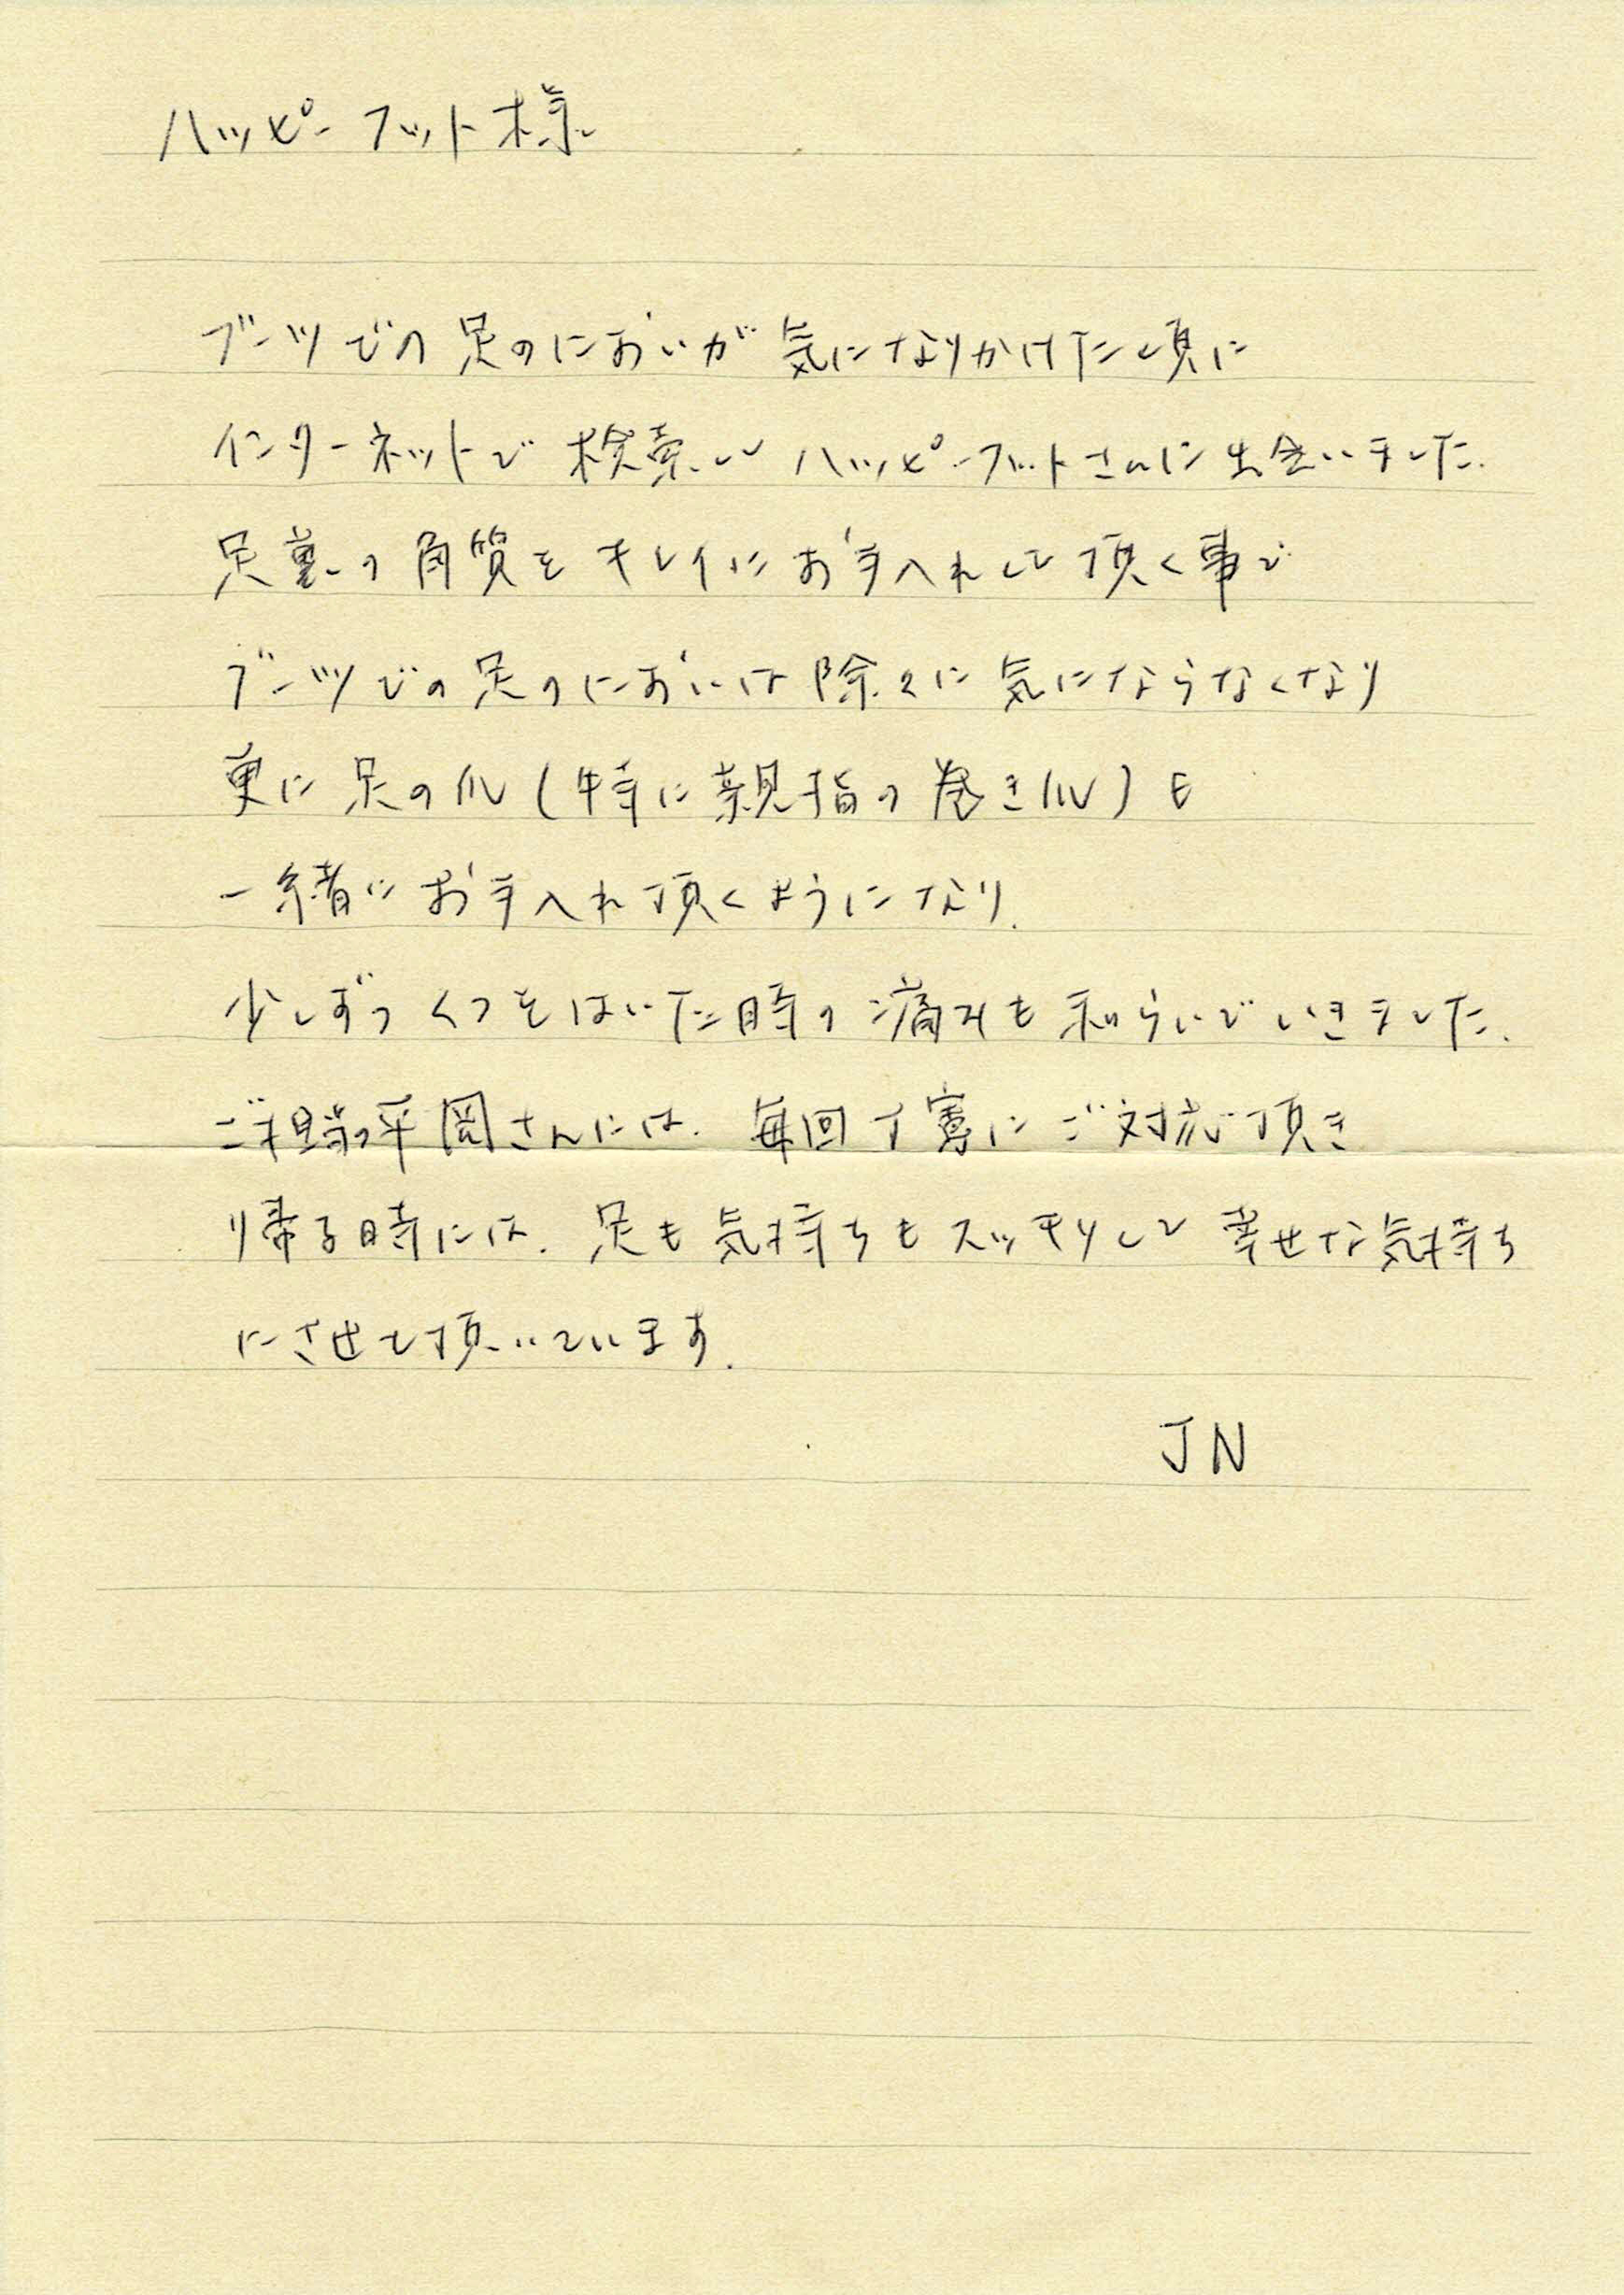 ハッピーフット様
ブーツでの足のにおいが気になりかけた頃に
インターネットで検索しハッピーフットさんに出会いました.
足裏の角質をキレイにお手入れして頂く事で
ブーツでの足のにおいは除々に気にならなくなり
更に足の爪(特に親指の巻き爪)も
一緒にお手入れ頂くようになり.
少しずつくつをはいた時の痛みも和らいでいきました.
ご担当の平岡さんには.毎回丁寧にご対応頂き
帰る時には.足も気持ちもスッキリして幸せな気持ち
にさせて頂いています.
JN